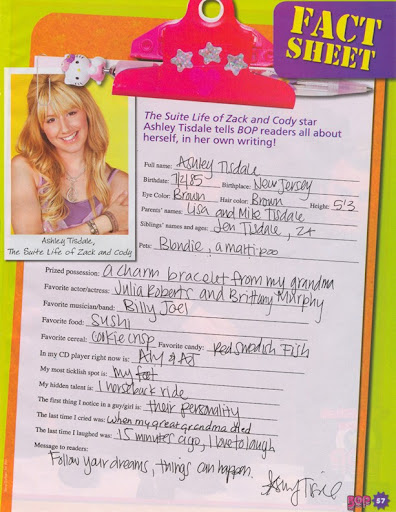 FACT
SHEET
The Suite Life of Zack and Cody star
Ashley Tisdale tells BOP readers all about
herself, in her own writing!
Full name: Ashley Tisdale
Birthdate: 7/2/85 Birthplace: New Jersey
Eye Color: Brown Hair color: Brown Height: 5'3
Parents' names: Lisa and Mike Tisdale
Siblings' names and ages: Jen Tisdale, 24
Pets: Blondie, a malti-poo
Ashley Tisdale,
The Suite Life of Zack and Cody
Prized possession: a charm bracelet from my grandma
Favorite actor/actress: Julia Roberts and Brittany Murphy
Favorite musician/band: Billy Joel
Favorite food: Sushi
Favorite cereal: Cookie crisp Favorite candy: Red Swedish Fish
In my CD player right now is: Aly & AJ
My most ticklish spot is: my foot
My hidden talent is: I horseback ride
The first thing I notice in a guy/girl is: their personality
The last time I cried was: when my great grandma died
The last time I laughed was: 15 minutes ago, I love to laugh
Message to readers:
Follow your dreams, things can happen.
BOP 57